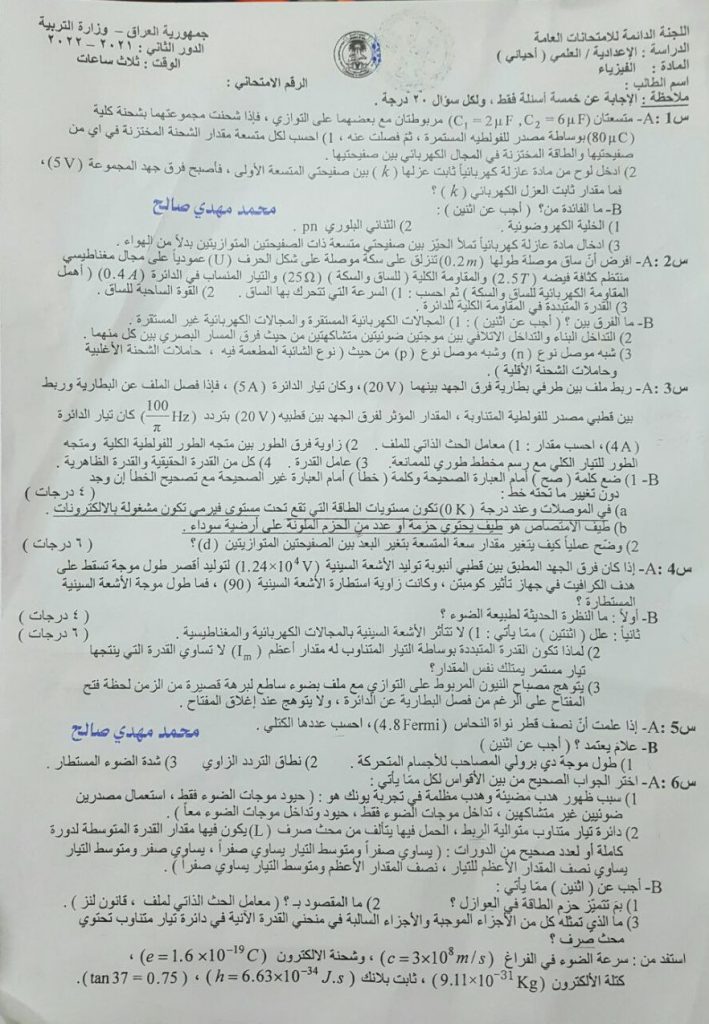 اللجنة الدائمة للامتحانات العامة
الدراسة : الإعدادية / العلمي ( أحيائي )
المادة : الفيزياء
اسم الطالب :
جمهورية العراق – وزارة التربية
الدور الثاني : ٢٠٢١ – ٢٠٢٢
الوقت : ثلاث ساعات
الرقم الامتحاني :
ملاحظة : الإجابة عن خمسة أسئلة فقط ، ولكل سؤال ٢٠ درجة .
س1: A- متسعتان (C₁ = 2μF , C₂ = 6μF) مربوطتان مع بعضهما على التوازي ، فإذا شحنت مجموعتهما بشحنة كلية
(80μC) بوساطة مصدر للفولطية المستمرة ، ثم فصلت عنه ، 1) احسب لكل متسعة مقدار الشحنة المختزنة في اي من
صفيحتيها والطاقة المختزنة في المجال الكهربائي بين صفيحتيها .
2) ادخل لوح من مادة عازلة كهربائياً ثابت عزلها ( k ) بين صفيحتي المتسعة الأولى ، فأصبح فرق جهد المجموعة (5 V) ،
فما مقدار ثابت العزل الكهربائي ( k ) ؟
B- ما الفائدة من؟ ( أجب عن اثنين ) :
محمد مهدي صالح
1) الخلية الكهروضوئية . 2) الثنائي البلوري pn .
3) ادخال مادة عازلة كهربائياً تملأ الحيّز بين صفيحتي متسعة ذات الصفيحتين المتوازيتين بدلاً من الهواء .
س2: A- افرض أنّ ساق موصلة طولها (0.2m) تنزلق على سكة موصلة على شكل الحرف (U) عمودياً على مجال مغناطيسي
منتظم كثافة فيضه (2.5T) والمقاومة الكلية ( للساق والسكة ) (25Ω) والتيار المنساب في الدائرة (0.4 A) ( أهمل
المقاومة الكهربائية للساق والسكة ) ثم احسب : 1) السرعة التي تتحرك بها الساق . 2) القوة الساحبة للساق .
3) القدرة المتبددة في المقاومة الكلية للدائرة .
B- ما الفرق بين ؟ ( أجب عن اثنين ) : 1) المجالات الكهربائية المستقرة والمجالات الكهربائية غير المستقرة .
2) التداخل البناء والتداخل الاتلافي بين موجتين ضوئيتين متشاكهتين من حيث فرق المسار البصري بين كل منهما .
3) شبه موصل نوع (n) وشبه موصل نوع (p) من حيث ( نوع الشائبة المطعمة فيه ، حاملات الشحنة الأغلبية
وحاملات الشحنة الأقلية ) .
س3: A- ربط ملف بين طرفي بطارية فرق الجهد بينهما (20 V) ، وكان تيار الدائرة (5 A) ، فإذا فصل الملف عن البطارية وربط
بين قطبي مصدر للفولطية المتناوبة ، المقدار المؤثر لفرق الجهد بين قطبيه (20 V) بتردد (100/π Hz) كان تيار الدائرة
(4 A) ، احسب مقدار : 1) معامل الحث الذاتي للملف . 2) زاوية فرق الطور بين متجه الطور للفولطية الكلية ومتجه
الطور للتيار الكلي مع رسم مخطط طوري للممانعة. 3) عامل القدرة . 4) كل من القدرة الحقيقية والقدرة الظاهرية .
B- 1) ضع كلمة ( صح ) أمام العبارة الصحيحة وكلمة ( خطأ ) أمام العبارة غير الصحيحة مع تصحيح الخطأ إن وجد
دون تغيير ما تحته خط : ( ٤ درجات )
a) في الموصلات وعند درجة (0 K) تكون مستويات الطاقة التي تقع تحت مستوى فيرمي تكون مشغولة بالالكترونات .
b) طيف الامتصاص هو طيف يحتوي حزمة أو عدد من الحزم الملونة على أرضية سوداء .
2) وضّح عملياً كيف يتغير مقدار سعة المتسعة بتغير البعد بين الصفيحتين المتوازيتين (d) ؟ ( ٦ درجات )
س4: A- إذا كان فرق الجهد المطبق بين قطبي أنبوبة توليد الأشعة السينية (1.24×10⁴ V) لتوليد أقصر طول موجة تسقط على
هدف الكرافيت في جهاز تأثير كومبتن ، وكانت زاوية استطارة الأشعة السينية (90) ، فما طول موجة الأشعة السينية
المستطارة ؟
B- أولاً : ما النظرة الحديثة لطبيعة الضوء ؟ ( ٤ درجات )
ثانياً : علل ( اثنتين ) ممّا يأتي : 1) لا تتأثر الأشعة السينية بالمجالات الكهربائية والمغناطيسية . ( ٦ درجات )
2) لماذا تكون القدرة المتبددة بوساطة التيار المتناوب له مقدار أعظم (Iₘ) لا تساوي القدرة التي ينتجها
تيار مستمر يمتلك نفس المقدار؟
3) يتوهج مصباح النيون المربوط على التوازي مع ملف بضوء ساطع لبرهة قصيرة من الزمن لحظة فتح
المفتاح على الرغم من فصل البطارية عن الدائرة ، ولا يتوهج عند إغلاق المفتاح .
س5: A- إذا علمت أنّ نصف قطر نواة النحاس (4.8 Fermi) ، احسب عددها الكتلي .
محمد مهدي صالح
B- علامَ يعتمد ؟ ( أجب عن اثنين )
1) طول موجة دي برولي المصاحب للأجسام المتحركة . 2) نطاق التردد الزاوي 3) شدة الضوء المستطار .
س6: A- اختر الجواب الصحيح من بين الأقواس لكل ممّا يأتي:
1) سبب ظهور هدب مضيئة وهدب مظلمة في تجربة يونك هو : ( حيود موجات الضوء فقط ، استعمال مصدرين
ضوئيين غير متشاكهين ، تداخل موجات الضوء فقط ، حيود وتداخل موجات الضوء معاً ) .
2) دائرة تيار متناوب متوالية الربط ، الحمل فيها يتألف من محث صرف (L) يكون فيها مقدار القدرة المتوسطة لدورة
كاملة أو لعدد صحيح من الدورات : ( يساوي صفراً ومتوسط التيار يساوي صفراً ، يساوي صفر ومتوسط التيار
يساوي نصف المقدار الأعظم للتيار ، نصف المقدار الأعظم ومتوسط التيار يساوي صفراً ) .
B- أجب عن ( اثنين ) ممّا يأتي :
1) بمَ تتميّز حزم الطاقة في العوازل ؟ 2) ما المقصود بـ ؟ ( معامل الحث الذاتي لملف ، قانون لنز ) .
3) ما الذي تمثله كل من الأجزاء الموجبة والأجزاء السالبة في منحني القدرة الآنية في دائرة تيار متناوب تحتوي
محث صرف ؟
استفد من : سرعة الضوء في الفراغ (c = 3×10⁸ m/s) ، وشحنة الالكترون (e = 1.6 ×10⁻¹⁹ C) ،
كتلة الألكترون (9.11×10⁻³¹ Kg) ، ثابت بلانك (h = 6.63×10⁻³⁴ J.s) ، (tan 37 = 0.75) .